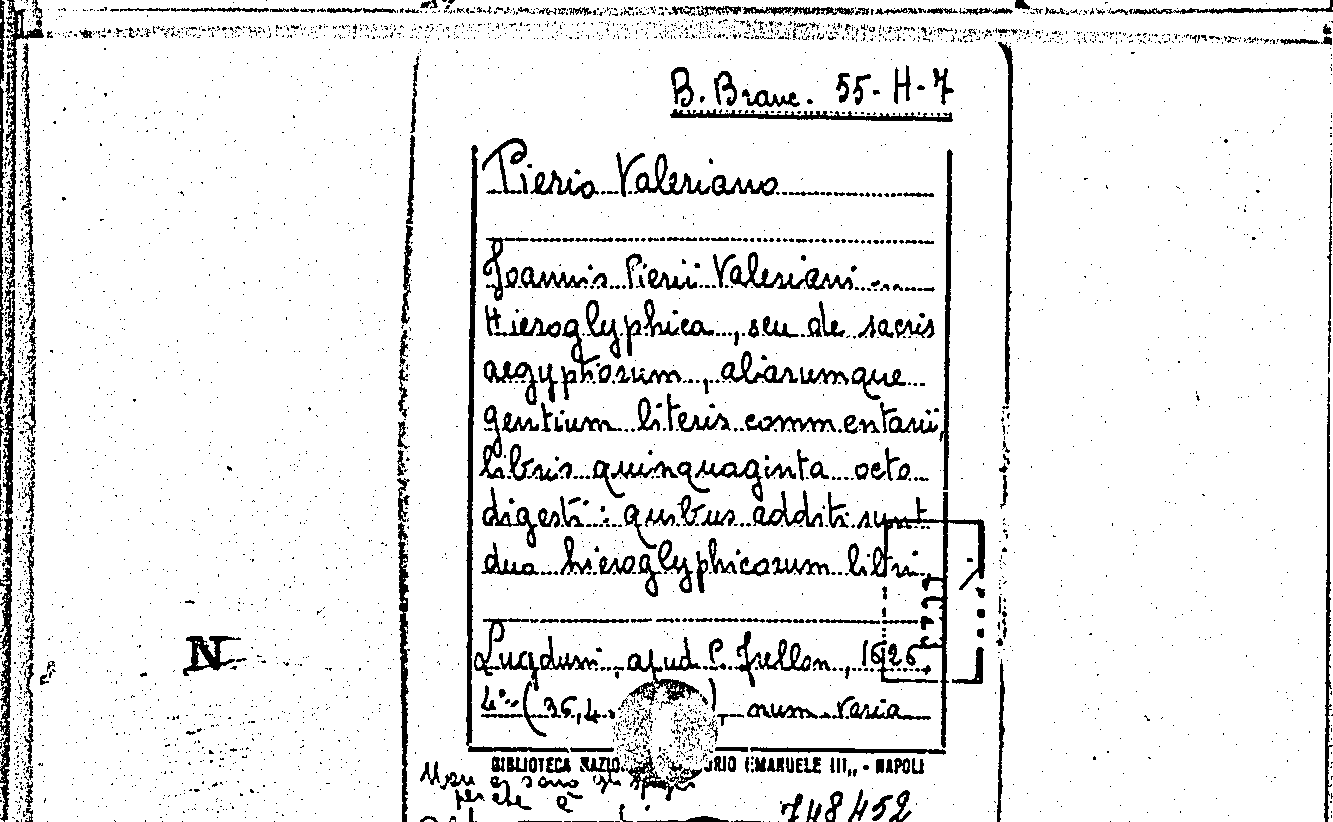 B. Branc. 55-H-7
Pierio Valeriano
Joannis Pierii Valeriani ....
Hieroglyphica, seu de sacris
aegyptiorum, aliarumque
gentium literis commentarii,
libris quinquaginta octo
digesti: quibus additi sunt
duo hieroglyphicorum libri.
Lugduni, apud P. Frellon, 1626.
4° (36,4 ), num. varia
BIBLIOTECA NAZIO RIO EMANUELE III,, - NAPOLI
N
perchè è
748452